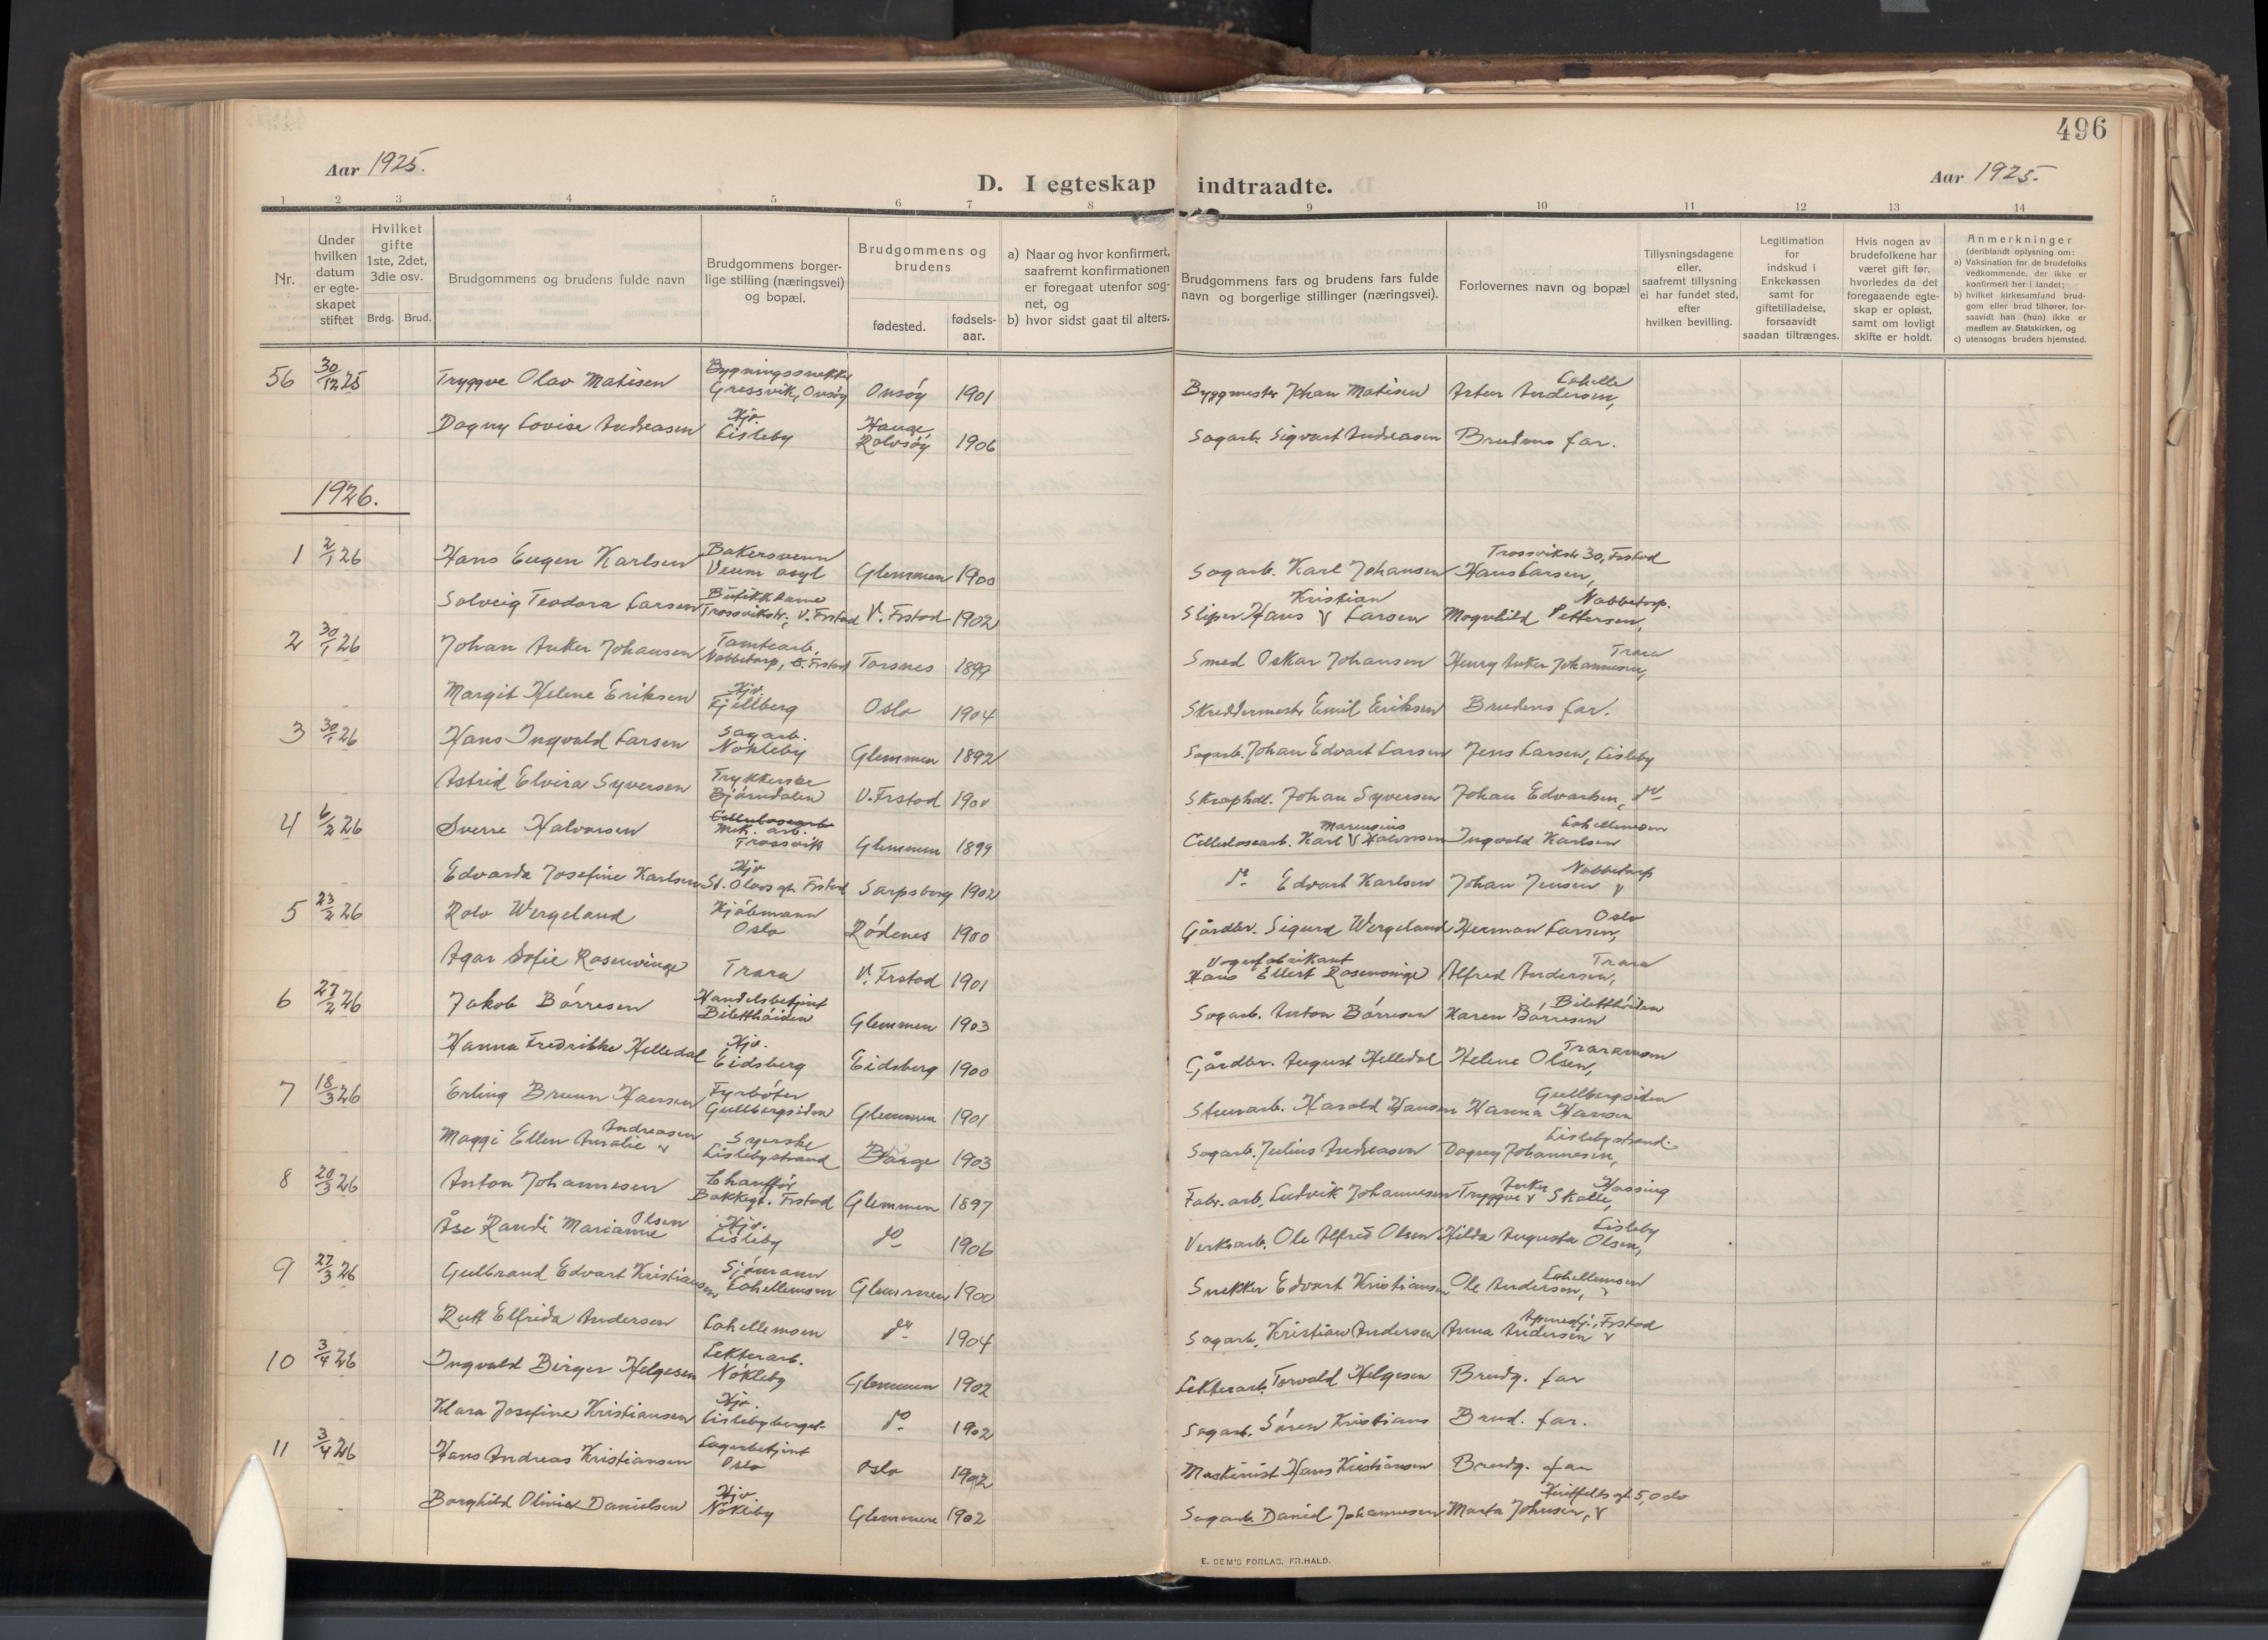 496
Aar 1925.
D. I egteskap indtraadte.
Aar 1925.
1 2 3 4 5 6 7 8 9 10 11 12 13 14
Nr.
Under hvilken datum er egte-skapet stiftet
Hvilket gifte 1ste, 2det, 3die osv.
Brdg. Brud.
Brudgommens og brudens fulde navn
Brudgommens borger-lige stilling (næringsvei) og bopæl.
Brudgommens og brudens
fødested.
fødsels-aar.
a) Naar og hvor konfirmert, saafremt konfirmationen er foregaat utenfor sog-net, og
b) hvor sidst gaat til alters.
Brudgommens fars og brudens fars fulde navn og borgerlige stillinger (næringsvei).
Forlovernes navn og bopæl
Tillysningsdagene eller, saafremt tillysning ei har fundet sted, efter hvilken bevilling.
Legitimation for indskud i Enkekassen samt for giftetilladelse, forsaavidt saadan tiltrænges.
Hvis nogen av brudefolkene har været gift før, hvorledes da det foregaaende egte-skap er opløst, samt om lovligt skifte er holdt.
Anmerkninger (deriblandt oplysning om:
a) Vaksination for de brudefolks vedkommende, der ikke er konfirmert her i landet;
b) hvilket kirkesamfund brud-gom eller brud tilhører, for-saavidt han (hun) ikke er medlem av Statskirken, og
c) utensogns bruders hjemsted.
56 30/12 25 Tryggve Olav Matisen Bygningssnekker Gressvik, Onsöy Onsöy 1901 Byggmester Johan Matisen Artur Andersen, Lahelle
Dagny Lovise Andreasen Hjv. Lisleby Hauge, Rolvsöy 1906 Sagarb. Sigvart Andreasen Brudens far.
1926.
1 2/1 26 Hans Eugen Karlsen Bakersvenn Veum asyl Glemmen 1900 Sagarb. Karl Johansen Hans Larsen, Trossvikstr 30, Frstad
Solveig Teodora Larsen Butikkdame Trossvikstr., V. Frstad V. Frstad 1902 Sliper Hans Kristian Larsen Magnhild Pettersen, Nabbetorp.
2 30/1 26 Johan Anker Johansen Tomtearb. Nabbetorp, Ö. Frstad Torsnes 1899 Smed Oskar Johansen Henry Anker Johannesen, Trara
Margit Helene Eriksen Hjv. Fjellberg Oslo 1904 Skreddermestr Emil Eriksen Brudens far.
3 30/1 26 Hans Ingvald Larsen Sagarb. Nökleby Glemmen 1892 Sagarb. Johan Edvart Larsen Jens Larsen, Lisleby
Astrid Elvira Syversen Trykkerske Björndalen V. Frstad 190 Skraphdl. Johan Syversen Johan Edvartsen, do
4 6/2 26 Sverre Halvorsen Cellulosearb. Mek. arb. Trossvik Glemmen 1899 Cellulosearb. Karl Marensius Halvorsen Ingvald Karlsen Lahellemoen
Edvarda Josefine Karlsen Hjv St. Olavs gt. Frstad Sarpsborg 1902 do Edvart Karlsen Johan Jensen Nabbetorp
5 23/2 26 Rolv Wergeland Kjöbmann Oslo Rödenes 1900 Gårdbr. Sigurd Wergeland Herman Larsen, Oslo
Agar Sofie Rosenvinge Trara V. Frstad 1901 Vognfabrikant Hans Ellert Rosenvinge Alfred Andersen, Trara
6 27/2 26 Jakob Börresen Handelsbetjent Biletthöiden Glemmen 1903 Sagarb. Anton Börresen Karen Börresen Biletthöiden
Hanna Fredrikke Helledal Hjv. Eidsberg Eidsberg 1900 Gårdbr. August Helledal Helene Olsen, Traramoen
7 18/3 26 Erling Bruun Hansen Fyrböter Gullbergsiden Glemmen 1901 Stenarb. Harald Hansen Hanna Hansen Gullbergsiden
Maggi Ellen Amalie Andreasen Syerske Lislebystrand Borge 1903 Sagarb. Julius Andreasen Dagny Johannesen, Lislebystrand.
8 20/3 26 Anton Johannesen Chaufför Bakkegt. Frstad Glemmen 1897 Fabr. arb. Ludvik Johannesen Tryggve Anker Skolle, Hassing
Åse Randi Marianne Olsen Hjv. Lisleby do 1906 Verksarb. Ole Alfred Olsen Hilda Augusta Olsen, Lisleby
9 27/3 26 Gulbrand Edvart Kristiansen Sjömann Lahellemoen Glemmen 1900 Snekker Edvart Kristiansen Ole Andersen, Lahellemoen
Rutt Elfrida Andersen Lahellemoen do 1904 Sagarb. Kristian Andersen Anna Andersen Frstad
10 3/4 26 Ingvald Birger Helgesen Lekterarb. Nökleby Glemmen 1902 Lekterarb. Torvald Helgesen Brudg. far
Klara Josefine Kristiansen Hjv. Lislebyberget do 1902 Sagarb. Sören Kristians Brud. far.
11 3/4 26 Hans Andreas Kristiansen Lagerbetjent Oslo Oslo 1902 Maskinist Hans Kristiansen Brudg. far
Borghild Olivia Danielsen Hjv. Nökleby Glemmen 1902 Sagarb. Daniel Johannesen Marta Johnsen, Huitfelts gt 5, Oslo
E. SEM'S FORLAG, FR.HALD.